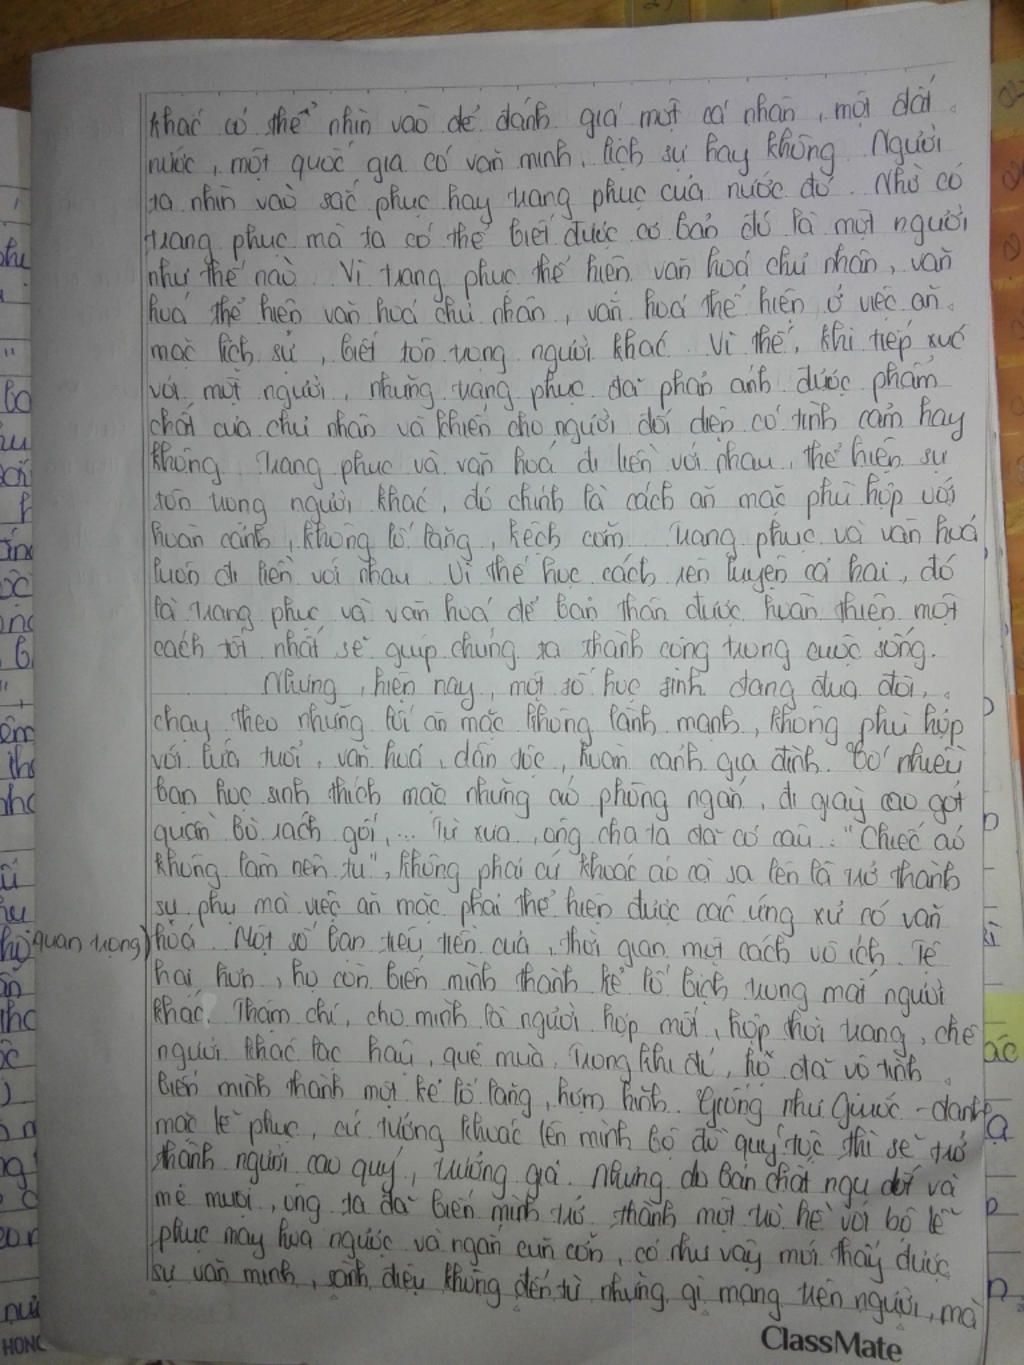 khác có thể nhìn vào để đánh giá một cá nhân, một đất
nước, một quốc gia có văn minh, lịch sự hay không. Người
ta nhìn vào sắc phục hay trang phục của nước đó. Nhờ có
trang phục mà ta có thể biết được cơ bản đó là một người
như thế nào. Vì trang phục thể hiện văn hoá chủ nhân, văn
hoá thể hiện văn hoá chủ nhân, văn hoá thể hiện ở việc ăn
mặc lịch sử, biết tôn trọng người khác. Vì thế, khi tiếp xúc
với một người, những trang phục đã phản ánh được phẩm
chất của chủ nhân và khiến cho người đối diện có tình cảm hay
không. Trang phục và văn hoá đi liền với nhau, thể hiện sự
tôn trọng người khác, đó chính là cách ăn mặc phù hợp với
hoàn cảnh, không lố lăng, kệch cỡm. Trang phục và văn hoá
luôn đi liền với nhau. Vì thế học cách rèn luyện cả hai, đó
là trang phục và văn hoá để bản thân được hoàn thiện một
cách tốt nhất sẽ giúp chúng ta thành công trong cuộc sống.
Nhưng, hiện nay, một số học sinh đang đua đòi,
chạy theo những lối ăn mặc không lành mạnh, không phù hợp
với lứa tuổi, văn hoá, dân tộc, hoàn cảnh gia đình. Có nhiều
bạn học sinh thích mặc những áo phông ngắn, đi giày cao gót
quần bò rách gối,... Từ xưa, ông cha ta đã có câu: "Chiếc áo
không làm nên tu", không phải cứ khoác áo cà sa lên là trở thành
sư phụ mà việc ăn mặc phải thể hiện được các ứng xử có văn
quan trọng) hoá. Một số bạn tiêu tiền của, thời gian một cách vô ích. Tệ
hại hơn, họ còn biến mình thành kẻ lố bịch trong mắt người
khác. Thậm chí, cho mình là người hợp mốt, hợp thời trang, chê
người khác lạc hậu, quê mùa, trong khi đó, họ đã vô tình
biến mình thành một kẻ lố lăng, hợm hĩnh. Giống như Giuốc-đanh
mặc lễ phục, cứ tưởng khoác lên mình bộ đồ quý tộc thì sẽ trở
thành người cao quý, trưởng giả. Nhưng do bản chất ngu dốt và
mê muội, ông ta đã biến mình trở thành một trò hề với bộ lễ
phục may hoa ngược và ngắn cũn cỡn, có như vậy mới thấy được
sự văn minh, sành điệu không đến từ những gì mang trên người, mà
ClassMate